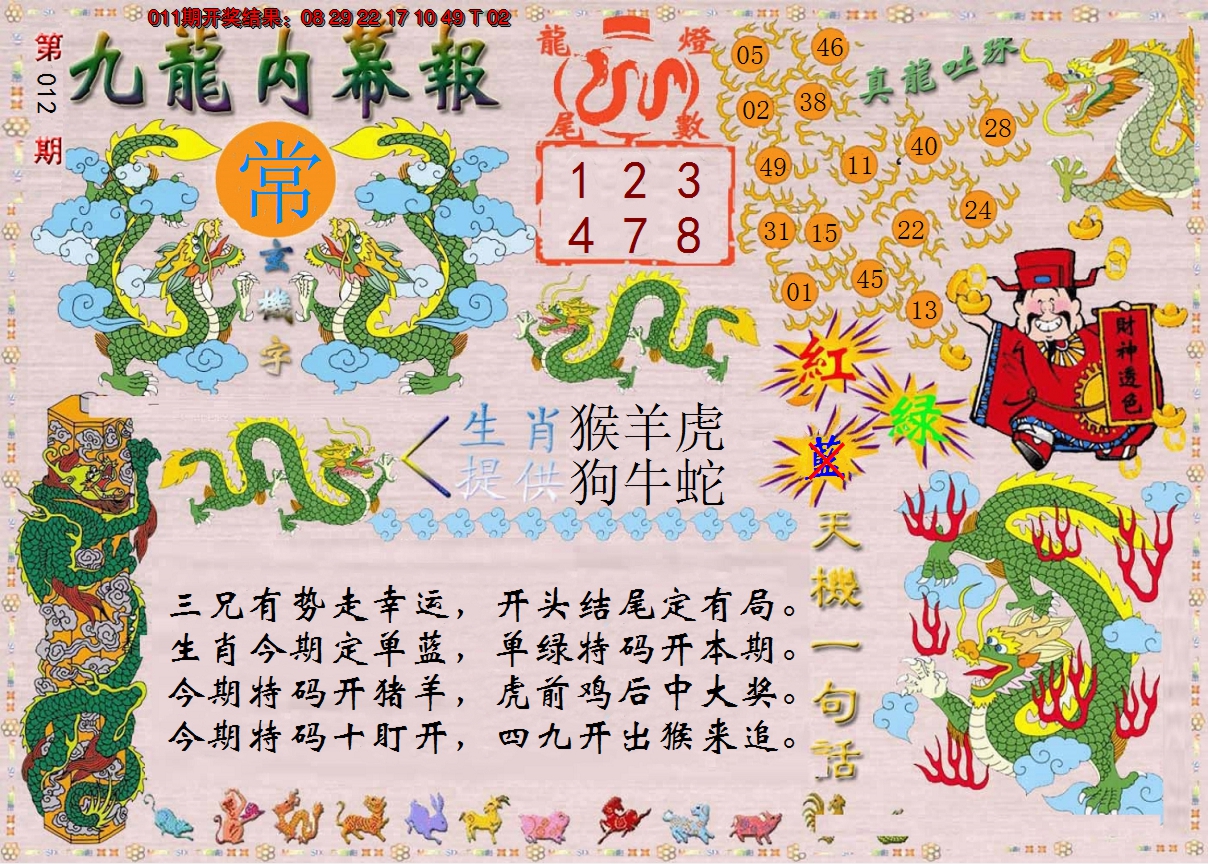 011期开奖结果：08 29 22 17 10 49 T 02
第012期
九龍内幕報
常
玄機字
龍燈尾數
1 2 3
4 7 8
真龍吐珠
05 46
02 38
49 11 40 28
31 15 22 24
01 45 13
財神透色
紅
绿
藍
生肖提供
猴羊虎
狗牛蛇
三兄有势走幸运，开头结尾定有局。
生肖今期定单蓝，单绿特码开本期。
今期特码开猪羊，虎前鸡后中大奖。
今期特码十盯开，四九开出猴来追。
天機一句話